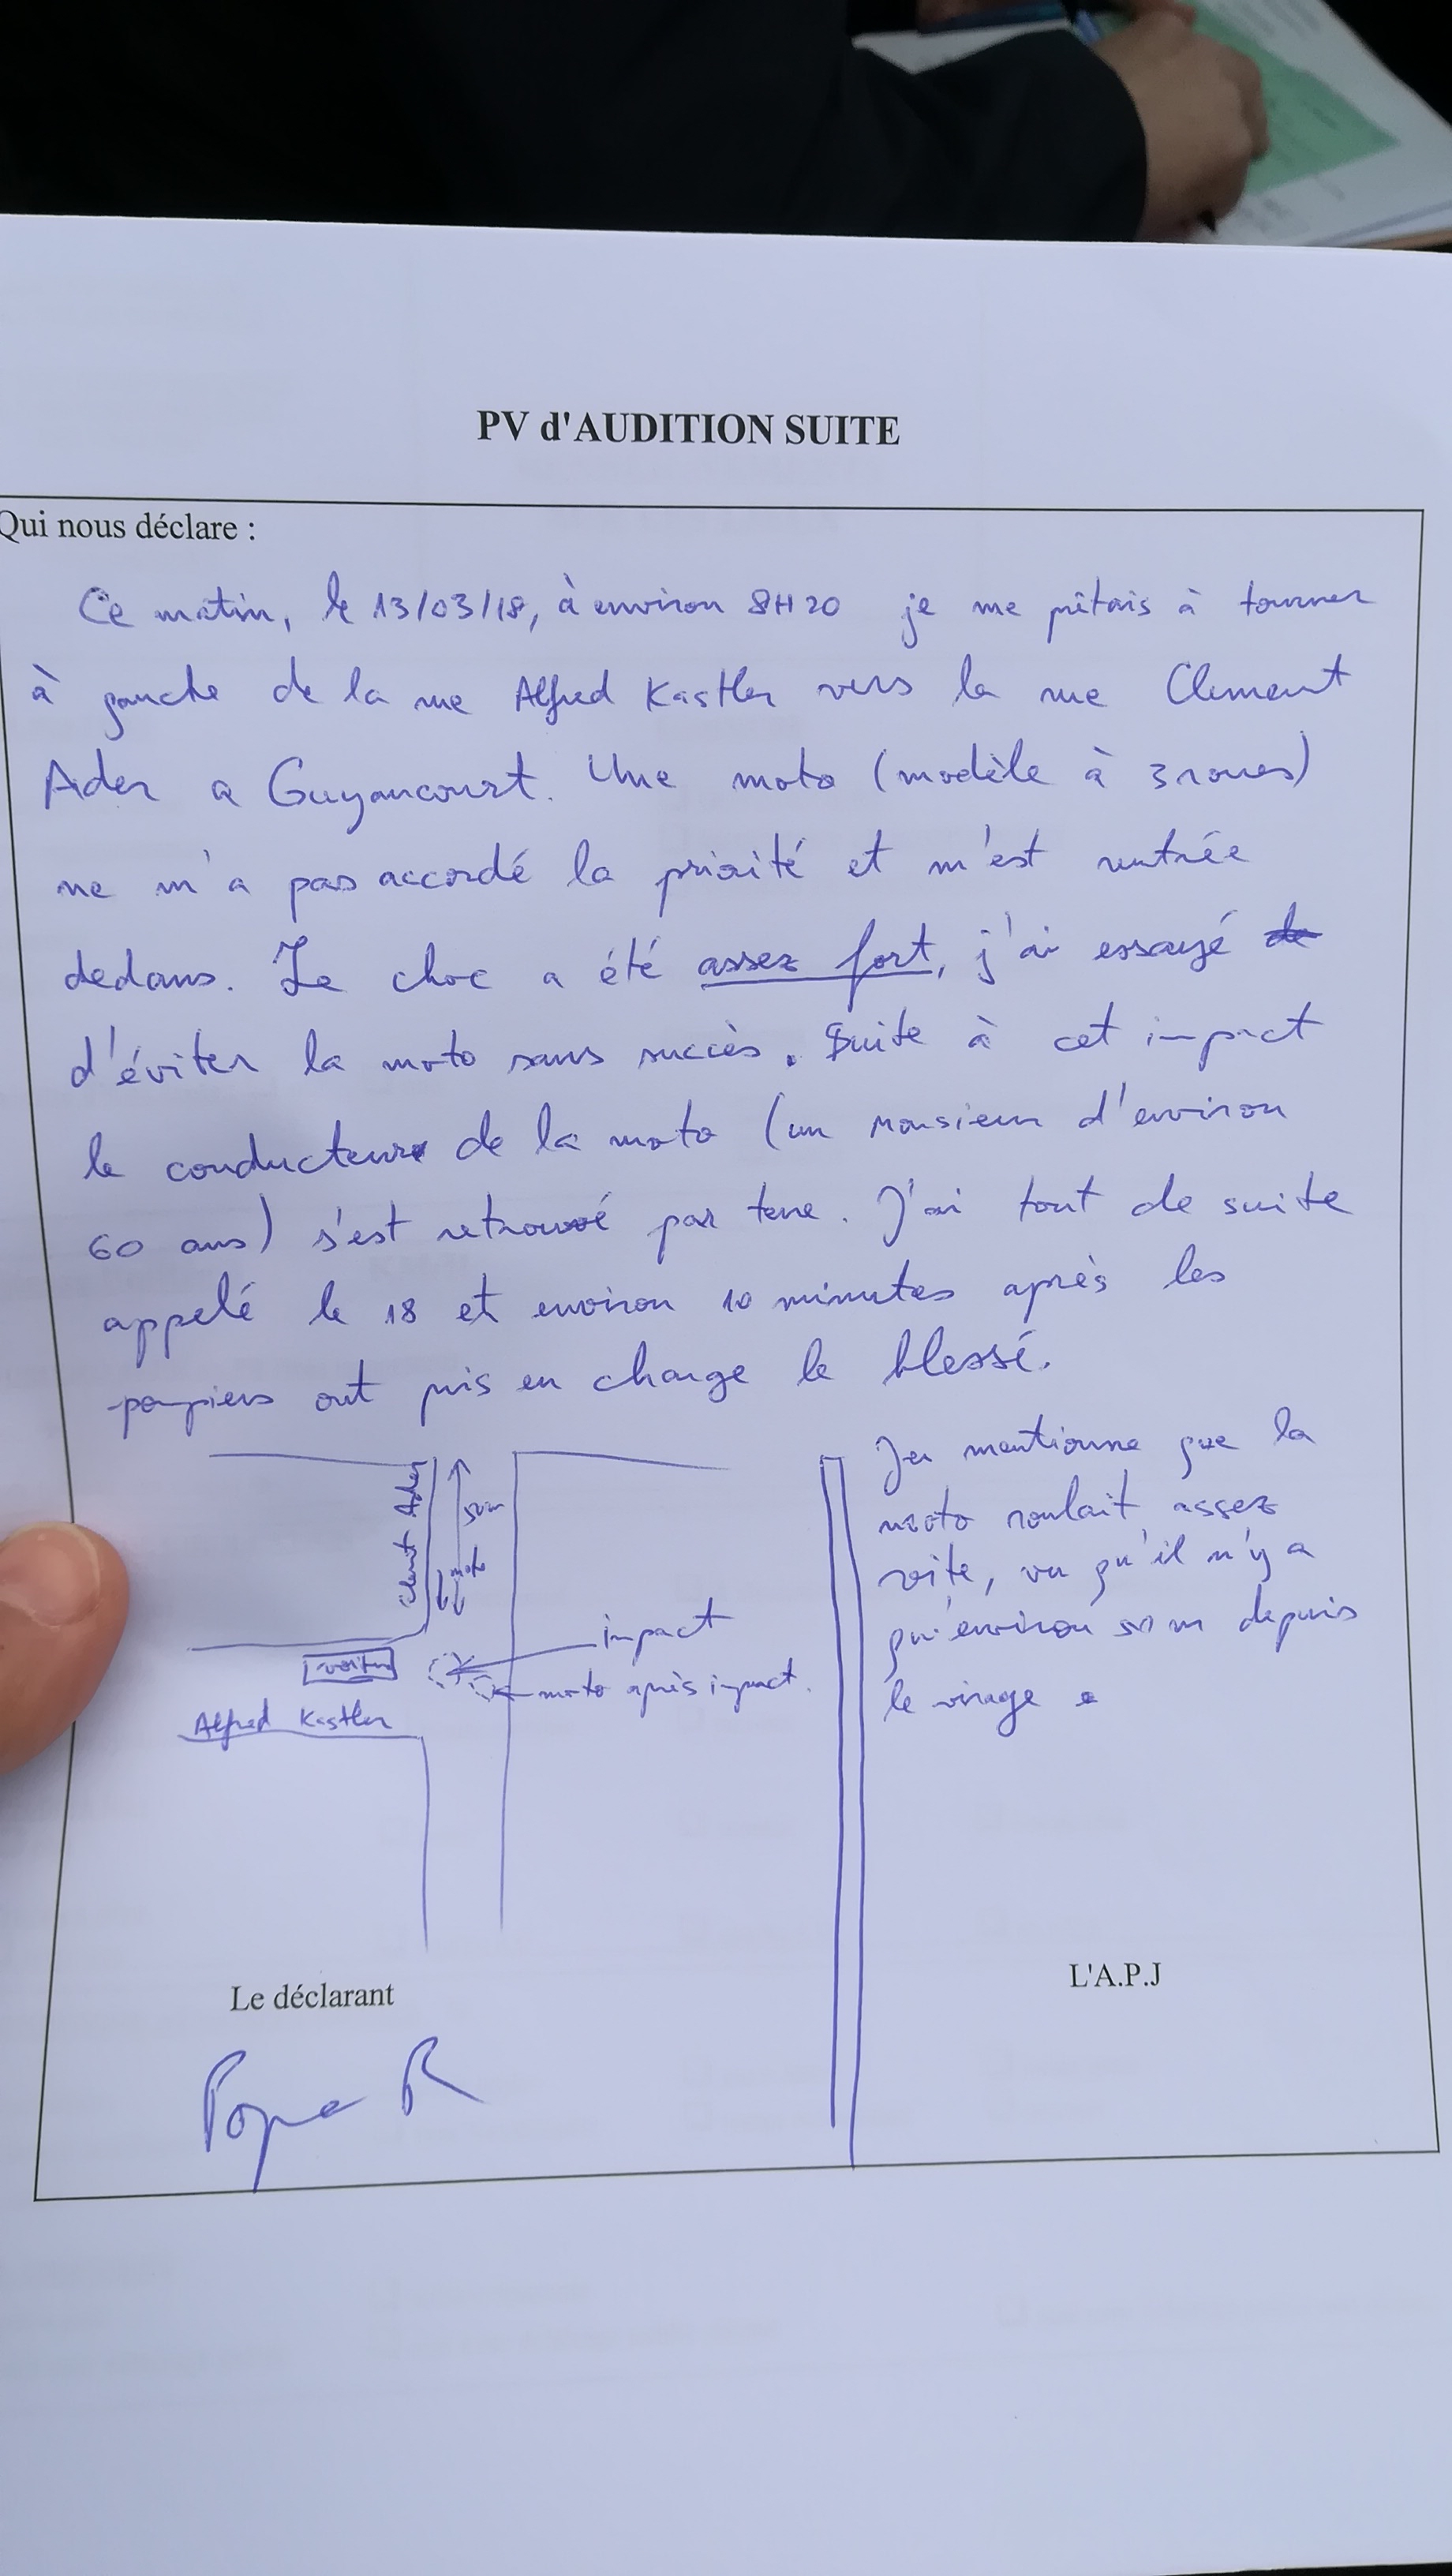 PV d'AUDITION SUITE
Qui nous déclare :
Ce matin, le 13/03/18, à environ 8H20 je me prêtais à tourner
à gauche de la rue Alfred Kastler vers la rue Clement
Ader a Guyancourt. Une moto (modèle à 3 roues)
ne m'a pas accordé la priorité et m'est rentrée
dedans. Le choc a été assez fort, j'ai essayé de
d'éviter la moto sans succès. Suite à cet impact
le conducteur de la moto (un monsieur d'environ
60 ans) s'est retrouvé par terre. J'ai tout de suite
appelé le 18 et environ 10 minutes après les
pompiers ont pris en charge le blessé.
Je mentionne que la
moto roulait assez
vite, vu qu'il n'y a
qu'environ 50 m depuis
le virage
Clement Ader
50m
moto
impact
voiture
moto après impact.
Alfred Kastler
Le déclarant
L'A.P.J
Popa R